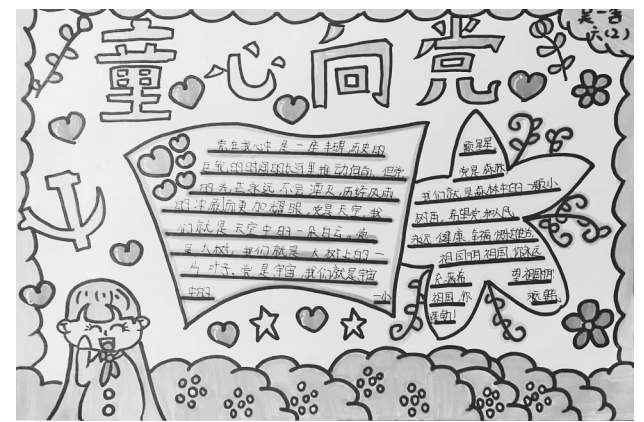 吴一言
六(2)
童心向党
党在我心中是一座丰碑,历史的
巨轮的时间的长河里推动向前,但党
的光芒永远不会湮灭,历经风雨
的冲刷而更加耀眼,党是天空,我
们就是天空中的一朵白云,党
是大树,我们就是大树上的一
片叶子,党是宇宙,我们就是宇宙
中的
一小
颗星星
党是森林
我们就是森林中的一颗小
树苗,希望党和人民
永远健康幸福
祖国啊祖国你永远
充满希
望祖国啊
祖国你